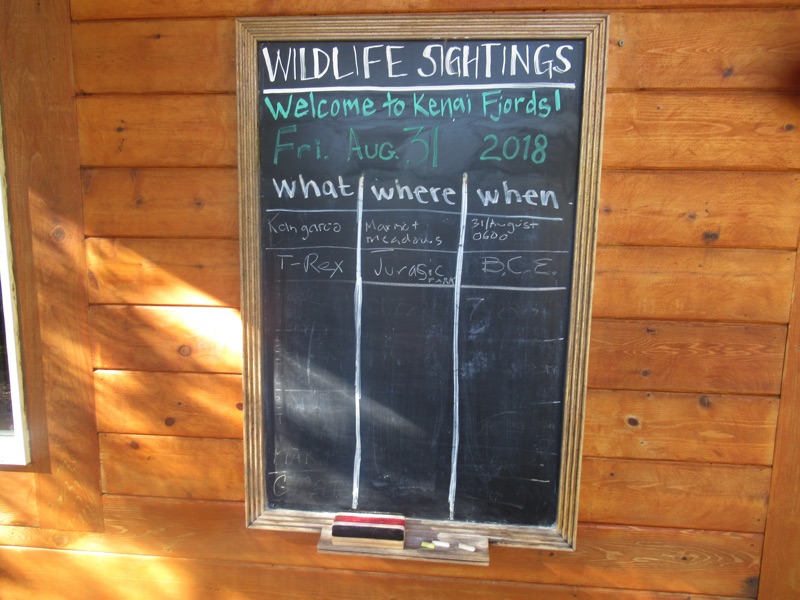 WILDLIFE SIGHTINGS
Welcome to Kenai Fjords!
Fri. Aug. 31 2018
what where when
Kangaroo Marmot meadows 31/August 0600
T-Rex Jurasic PARK B.C.E.